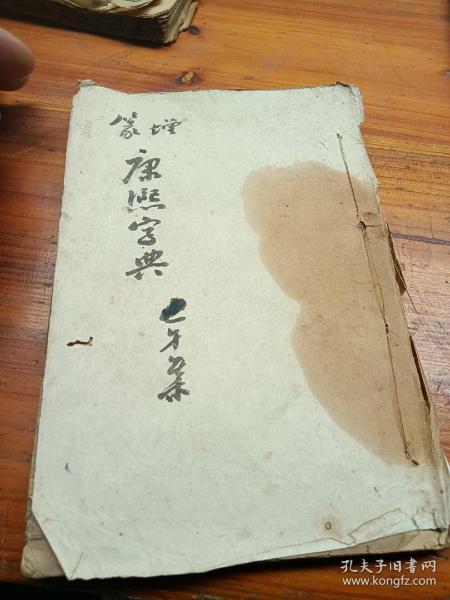 增篆
康熙字典
午集
孔夫子旧书网
www.kongfz.com